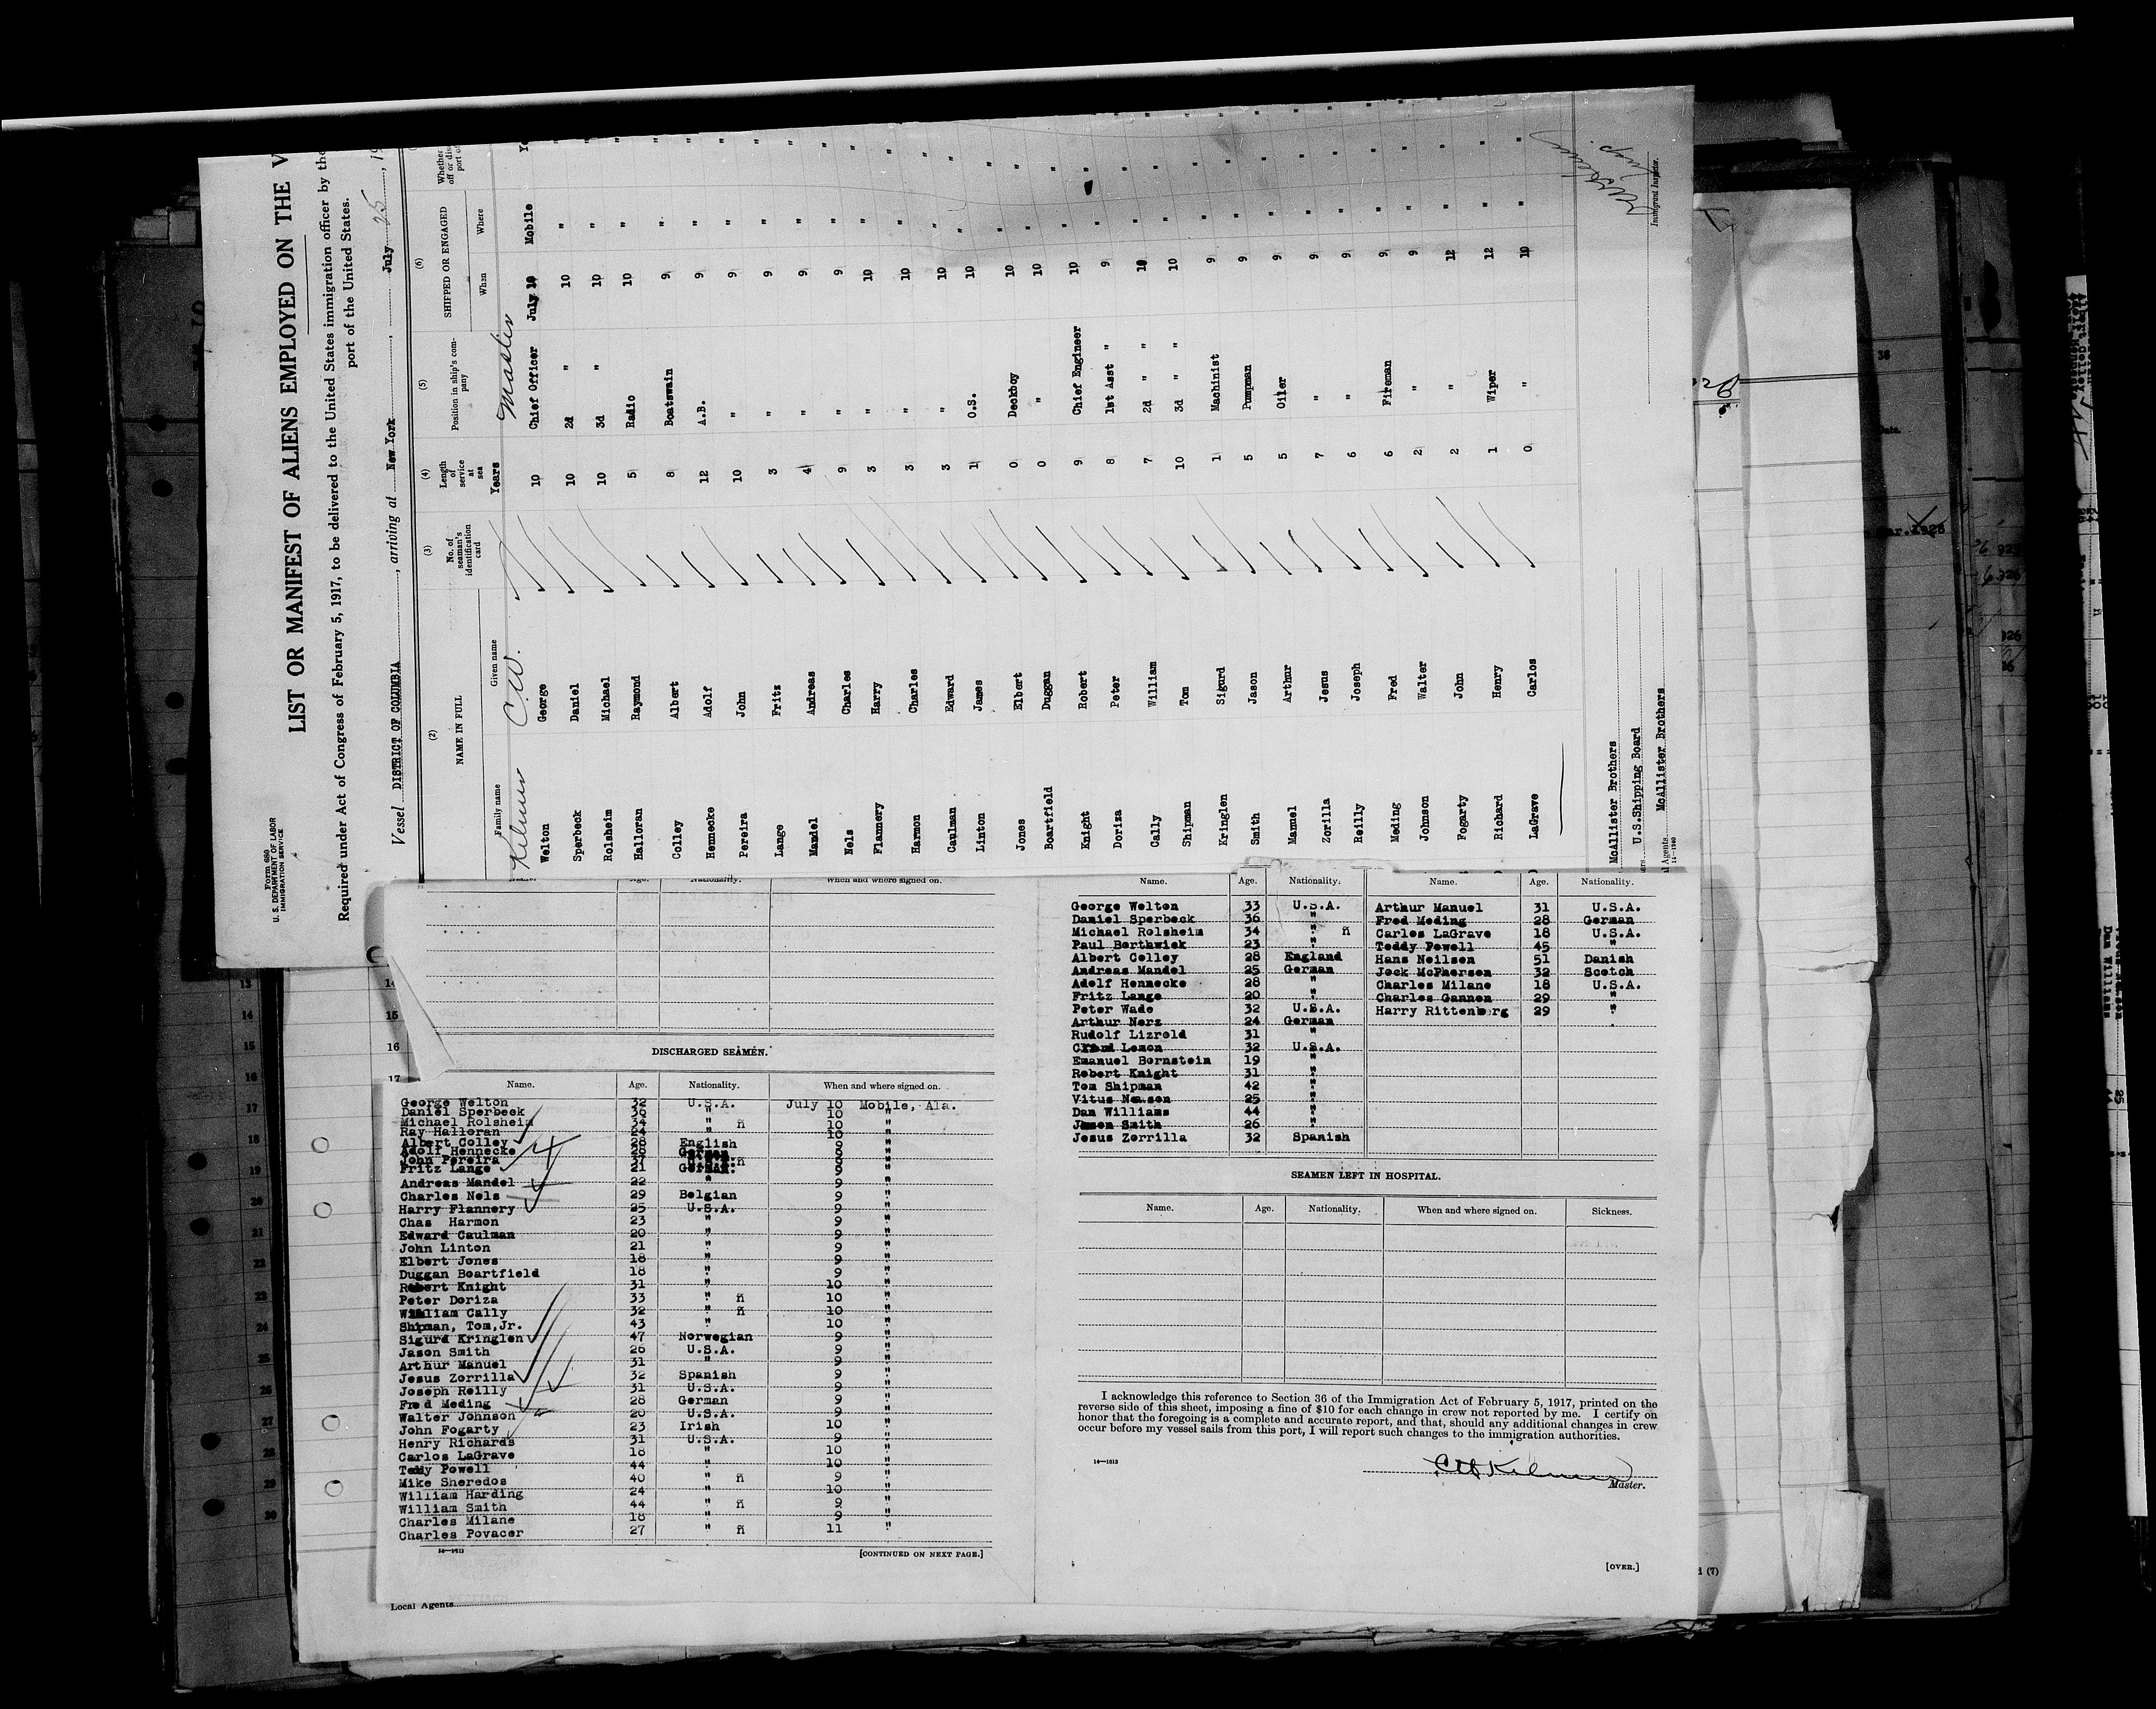 Form 680
U. S. DEPARTMENT OF LABOR
IMMIGRATION SERVICE
LIST OR MANIFEST OF ALIENS EMPLOYED ON THE V
Required under Act of Congress of February 5, 1917, to be delivered to the United States immigration officer by the
port of the United States.
Vessel DISTRICT OF COLUMBIA, arriving at New York, July 25, 19
(2) (3) (4) (5) (6)
NAME IN FULL No. of seaman's identification card Length of service at sea Position in ship's company SHIPPED OR ENGAGED Whether
Family name Given name Years When Where
Kilmer C.W. Master
Welton George 10 Chief Officer July 10 Mobile
Sperbeck Daniel 10 2d " 10 "
Rolsheim Michael 10 3d " 10 "
Halloran Raymond 5 Radio 10 "
Colley Albert 8 Boatswain 9 "
Hennecke Adolf 12 A.B. 9 "
Pereira John 10 " 9 "
Lange Fritz 3 " 9 "
Mandel Andreas 4 " 9 "
Nels Charles 9 " 9 "
Flannery Harry 3 " 10 "
Harmon Charles 3 " 10 "
Caulman Edward 3 " 10 "
Linton James 1 O.S. 10 "
Jones Elbert 0 Deckboy 10 "
Boartfield Duggan 0 " 10 "
Knight Robert 9 Chief Engineer 10 "
Doriza Peter 8 1st Asst " 9 "
Cally William 7 2d " " 10 "
Shipman Tom 10 3d " " 10 "
Kringlen Sigurd 1 Machinist 9 "
Smith Jason 5 Pumpman 9 "
Manuel Arthur 5 Oiler 9 "
Zorilla Jesus 7 " 9 "
Reilly Joseph 6 " 9 "
Meding Fred 6 Fireman 9 "
Johnson Walter 2 " 9 "
Fogarty John 2 " 12 "
Richard Henry 1 Wiper 12 "
LaGrave Carlos 0 " 10 "
McAllister Brothers
U.S.Shipping Board
Agents McAllister Brothers
14—1240
Immigrant Inspector.
Name. Age. Nationality. When and where signed on.
DISCHARGED SEAMEN.
Name. Age. Nationality. When and where signed on.
George Welton 32 U.S.A. July 10 Mobile, Ala.
Daniel Sperbeck 36 " 10 "
Michael Rolsheim 34 " n 10 "
Ray Halloran 24 " 10 "
Albert Colley 28 English 9 "
Adolf Hennecke 28 German 9 "
John Pereira 37 n 9 "
Fritz Lange 21 German 9 "
Andreas Mandel 22 " 9 "
Charles Nels 29 Belgian 9 "
Harry Flannery 25 U.S.A. 9 "
Chas Harmon 23 " 9 "
Edward Caulman 20 " 9 "
John Linton 21 " 9 "
Elbert Jones 18 " 9 "
Duggan Boartfield 18 " 9 "
Robert Knight 31 " 10 "
Peter Doriza 33 " n 10 "
William Cally 32 " n 10 "
Shipman, Tom,Jr. 43 " 10 "
Sigurd Kringlen 47 Norwegian 9 "
Jason Smith 26 U.S.A. 9 "
Arthur Manuel 31 " 9 "
Jesus Zorrilla 32 Spanish 9 "
Joseph Reilly 31 U.S.A. 9 "
Fred Meding 28 German 9 "
Walter Johnson 20 U.S.A. 9 "
John Fogarty 23 Irish 10 "
Henry Richards 31 U.S.A. 9 "
Carlos LaGrave 18 " 10 "
Teddy Powell 44 " 10 "
Mike Sheredos 40 " n 9 "
William Harding 24 " 10 "
William Smith 44 " n 9 "
Charles Milane 18 " 9 "
Charles Povacer 27 " n 11 "
14—1613
[CONTINUED ON NEXT PAGE.]
Local Agents
Name. Age. Nationality. Name. Age. Nationality.
George Welton 33 U.S.A. Arthur Manuel 31 U.S.A.
Daniel Sperbeck 36 " Fred Meding 28 German
Michael Rolsheim 34 " n Carles LaGrave 18 U.S.A.
Paul Borthwick 23 " Teddy Powell 45 "
Albert Colley 28 England Hans Neilsen 51 Danish
Andreas Mandel 25 German Jock McPherson 32 Scotch
Adolf Hennecke 28 " Charles Milane 18 U.S.A.
Fritz Lange 20 " Charles Gannon 29 "
Peter Wade 32 U.S.A. Harry Rittenberg 29 "
Arthur Nerz 24 German
Rudolf Lizrold 31 "
Lemon 32 U.S.A.
Emanuel Bornstein 19 "
Robert Knight 31 "
Tom Shipman 42 "
Vitus Neason 25 "
Dan Williams 44 "
Jason Smith 26 "
Jesus Zorrilla 32 Spanish
SEAMEN LEFT IN HOSPITAL.
Name. Age. Nationality. When and where signed on. Sickness.
I acknowledge this reference to Section 36 of the Immigration Act of February 5, 1917, printed on the
reverse side of this sheet, imposing a fine of $10 for each change in crew not reported by me. I certify on
honor that the foregoing is a complete and accurate report, and that, should any additional changes in crew
occur before my vessel sails from this port, I will report such changes to the immigration authorities.
14—1613
CW Kilmer
Master.
[OVER.]